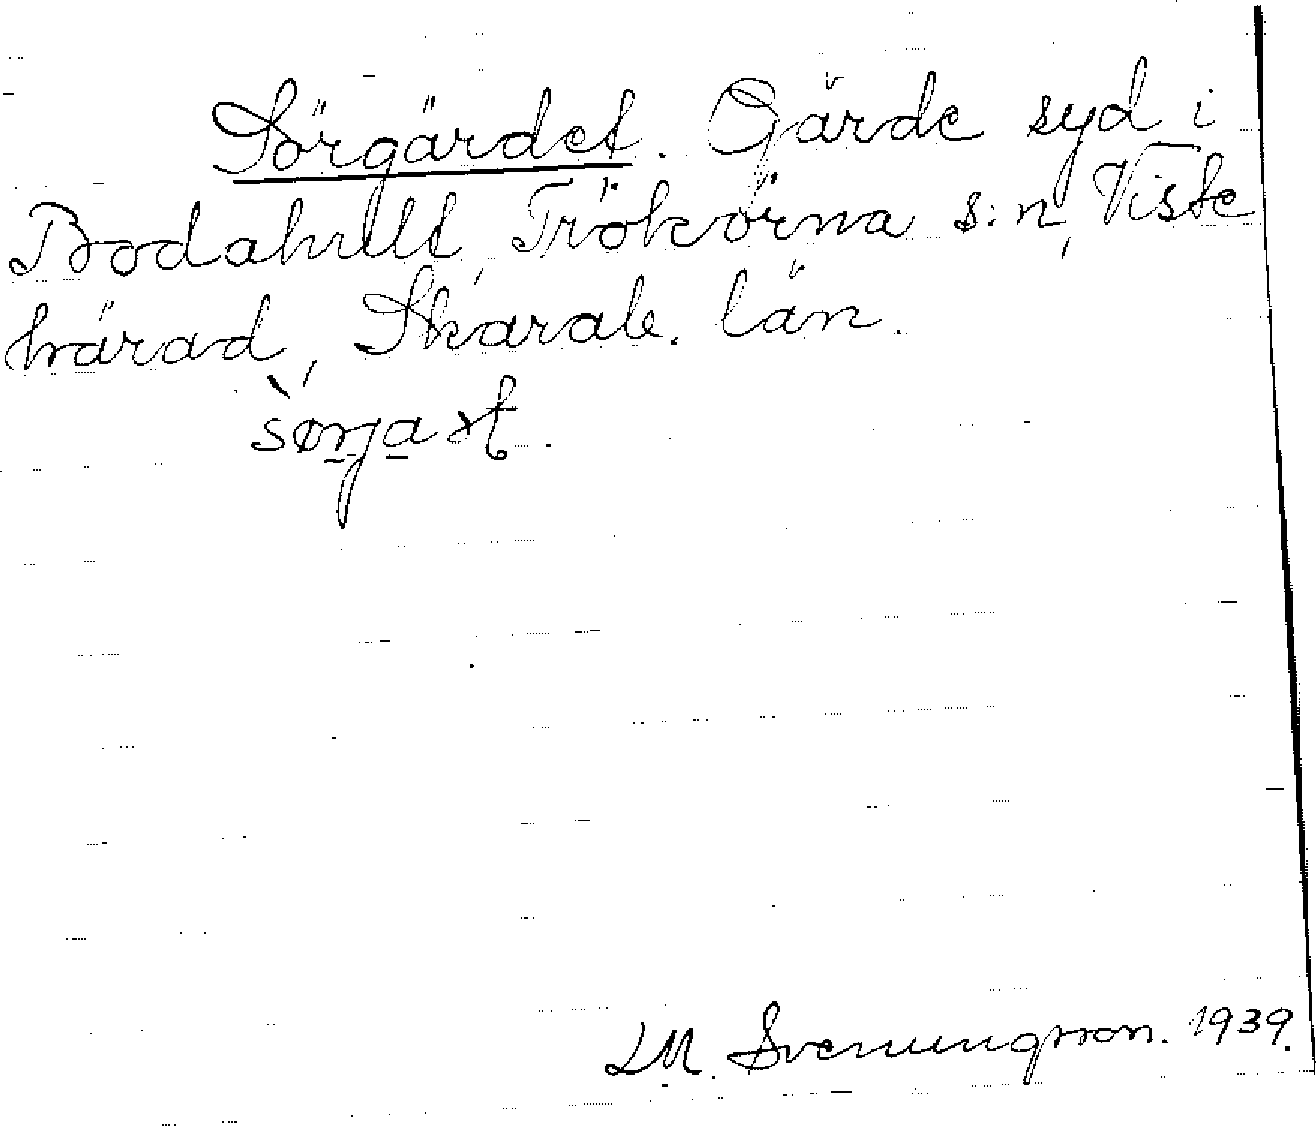 Sörgärdet. Gärde syd i
Bodahult, Trökörna s:n, Viste
härad, Skarab. län.
L M. Svenungsson. 1939.